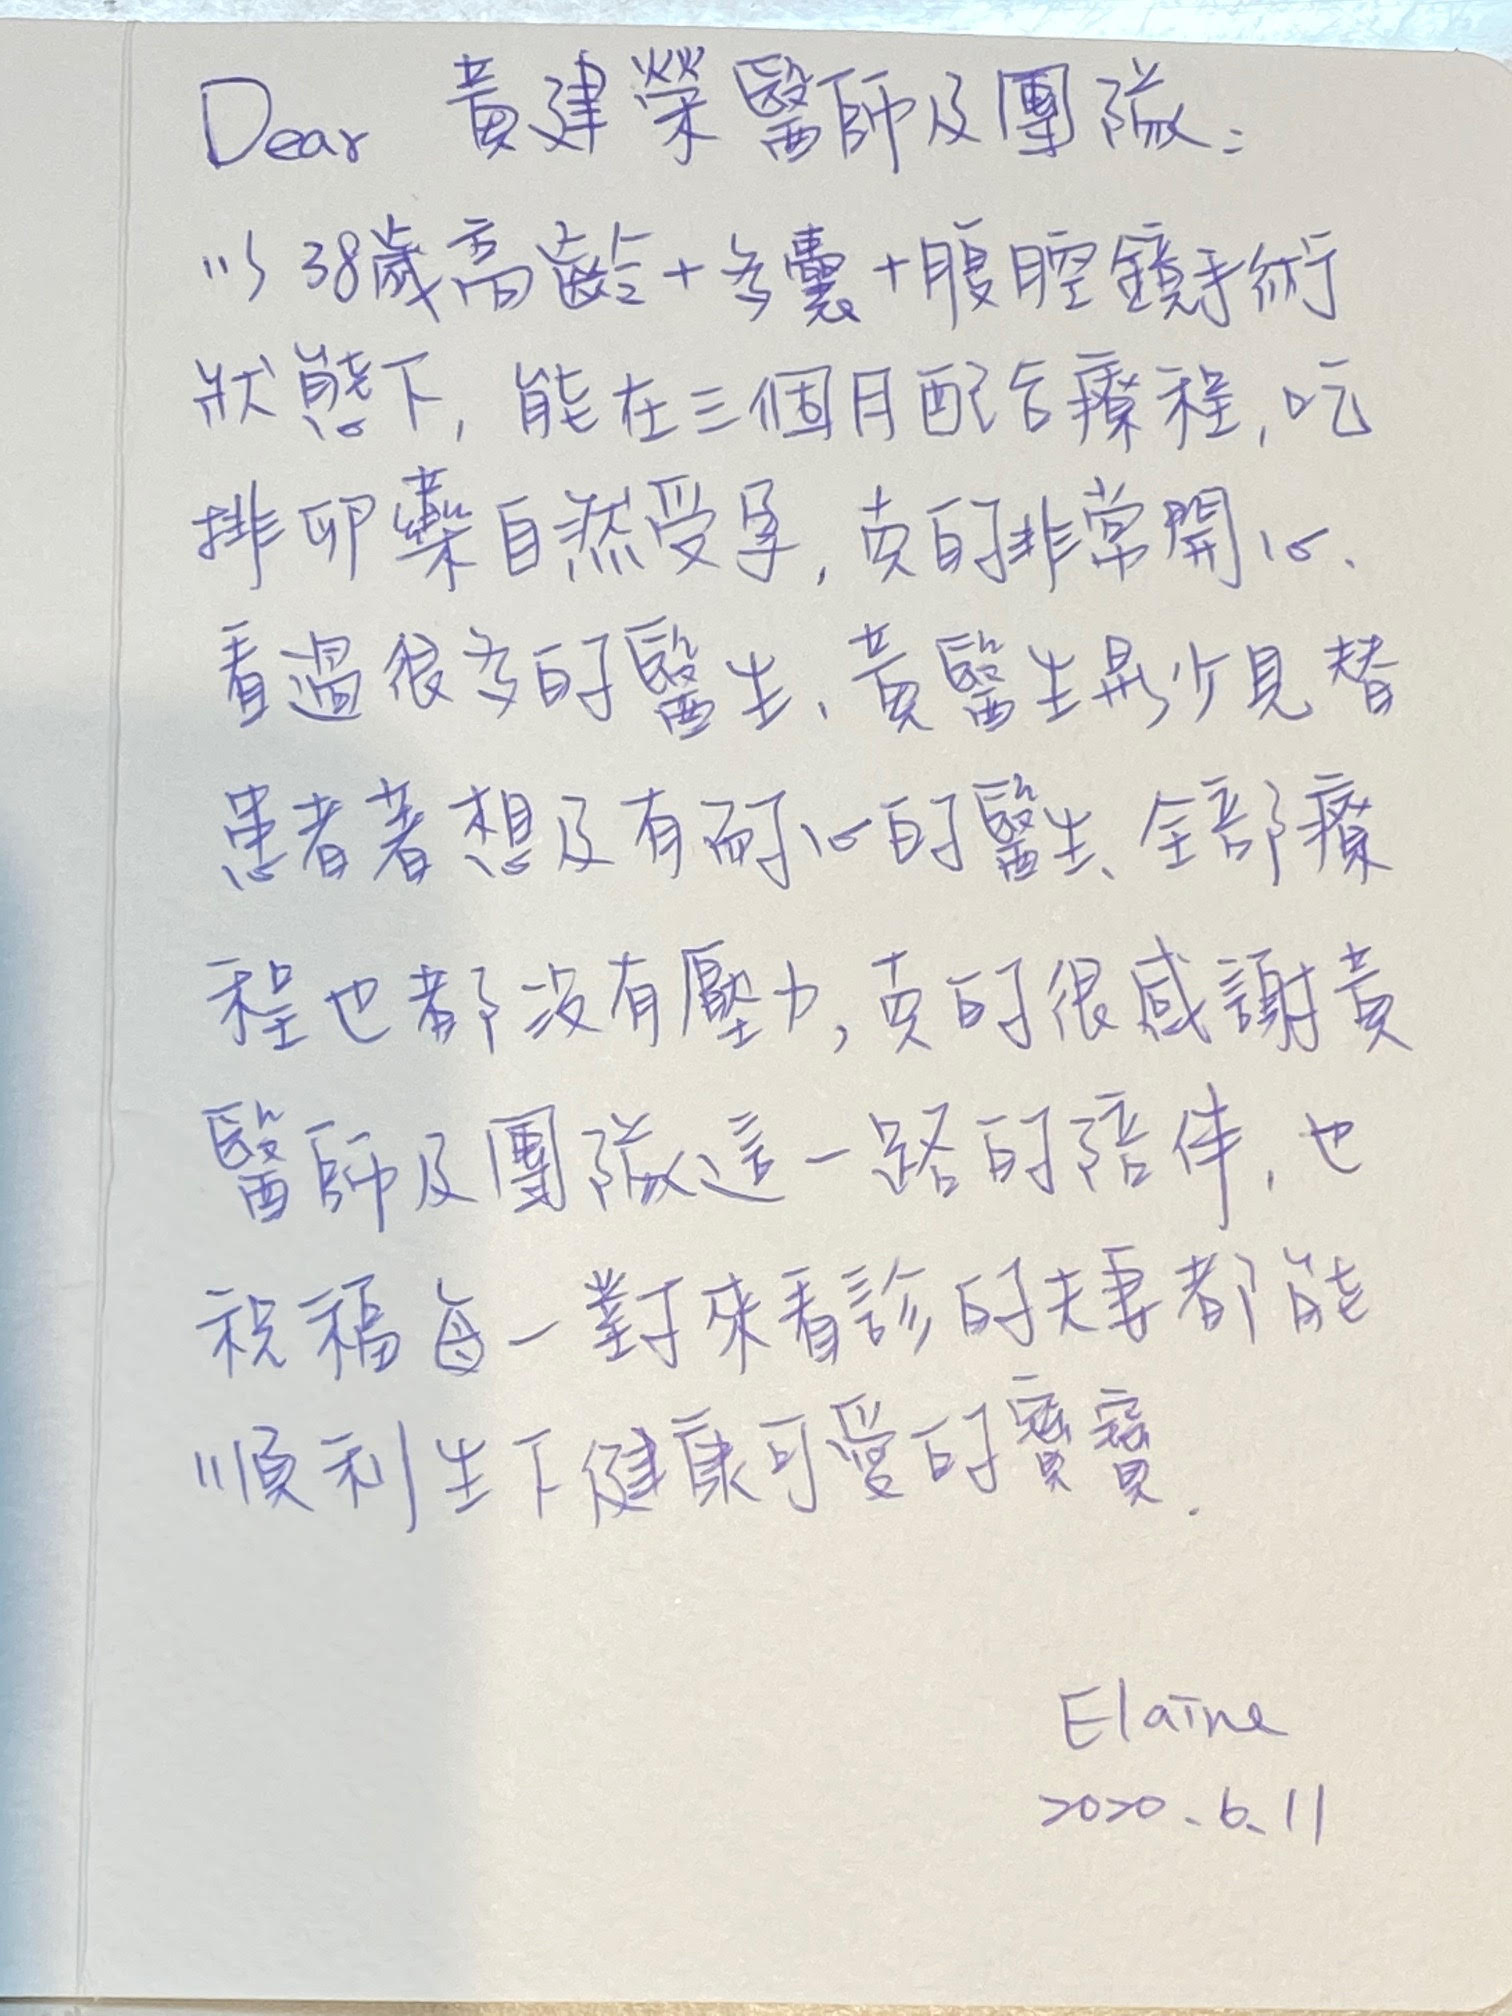 Dear 黃建榮醫師及團隊:
以38歲高齡+多囊+腹腔鏡手術
狀態下,能在三個月配合療程,吃
排卵藥自然受孕,真的非常開心、
看過很多的醫生、黃醫生是少見替
患者著想及有耐心的醫生、全部療
程也都沒有壓力,真的很感謝黃
醫師及團隊這一路的陪伴,也
祝福每一對來看診的夫妻都能
順利生下健康可愛的寶寶.
Elaine
2020.6.11